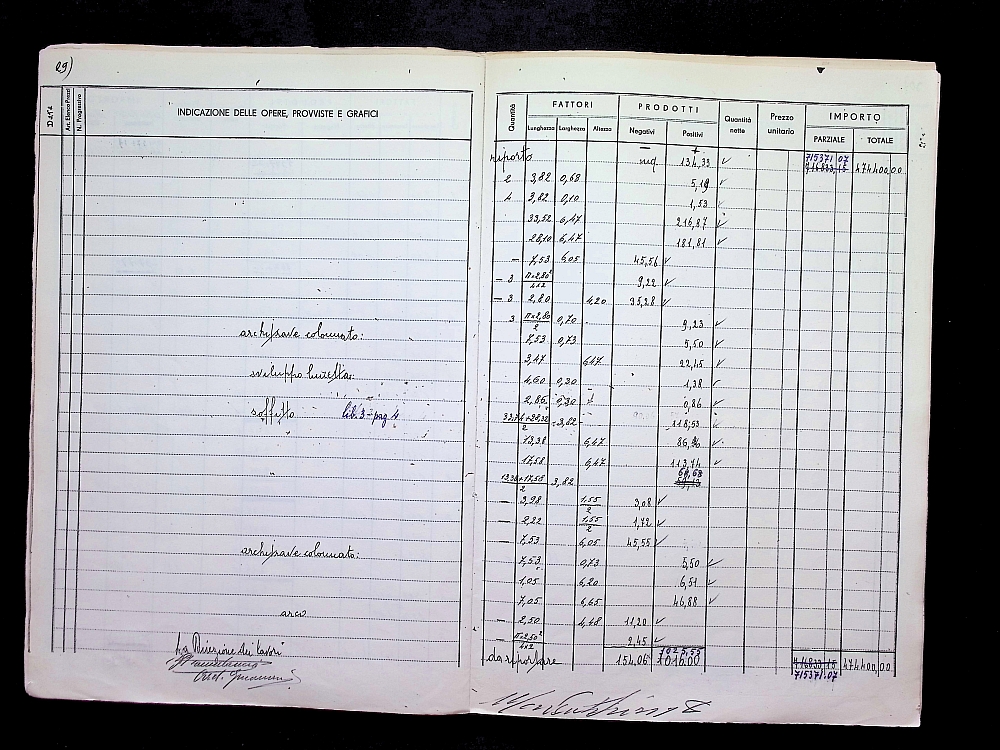 29)
D 414
Art. Elenco Prezzi
N. Progressivo
INDICAZIONE DELLE OPERE, PROVVISTE E GRAFICI
Quantità
FATTORI
Lunghezza Larghezza Altezza
PRODOTTI
Negativi Positivi
Quantità nette
Prezzo unitario
IMPORTO
PARZIALE TOTALE
— +
riporto neg. 134,33 ✓ 715371 07
716833,15 474400,00
2 3,82 0,68 5,19 ✓
4 3,82 0,10 1,53 ✓
33,52 6,47 216,87 ✓
28,10 6,47 181,81 ✓
— 7,53 6,05 45,56 ✓
— 3 π×2,80² / 4×2 9,22 ✓
— 3 2,80 4,20 35,28 ✓
3 π×2,80 / 2 0,70 9,23 ✓
architrave colonnato: 7,53 0,73 5,50 ✓
3,47 6,47 22,45 ✓
sviluppo luzetta: 4,60 0,30 1,38 ✓
2,86 0,30 0,86 ✓
soffitto lib. 3 - pag 4 2 3,62 118,53 ✓
13,38 6,47 86,56 ✓
17,58 6,47 113,74 ✓
" 13,38+17,58 / 2 3,82 60,68
59,13
— 3,98 1,55 / 2 3,08 ✓
— 2,22 1,55 / 2 1,72 ✓
— 7,53 6,05 45,55 ✓
architrave colonnato: 7,53 0,73 5,50 ✓
1,05 6,20 6,51 ✓
7,05 6,65 46,88 ✓
arco — 2,50 4,48 11,20 ✓
— π×2,50² / 4×2 2,45 ✓
La Direzione dei lavori
da riportare 154,06 1025,55
1016,00 716833,15 474400,00
715371,07